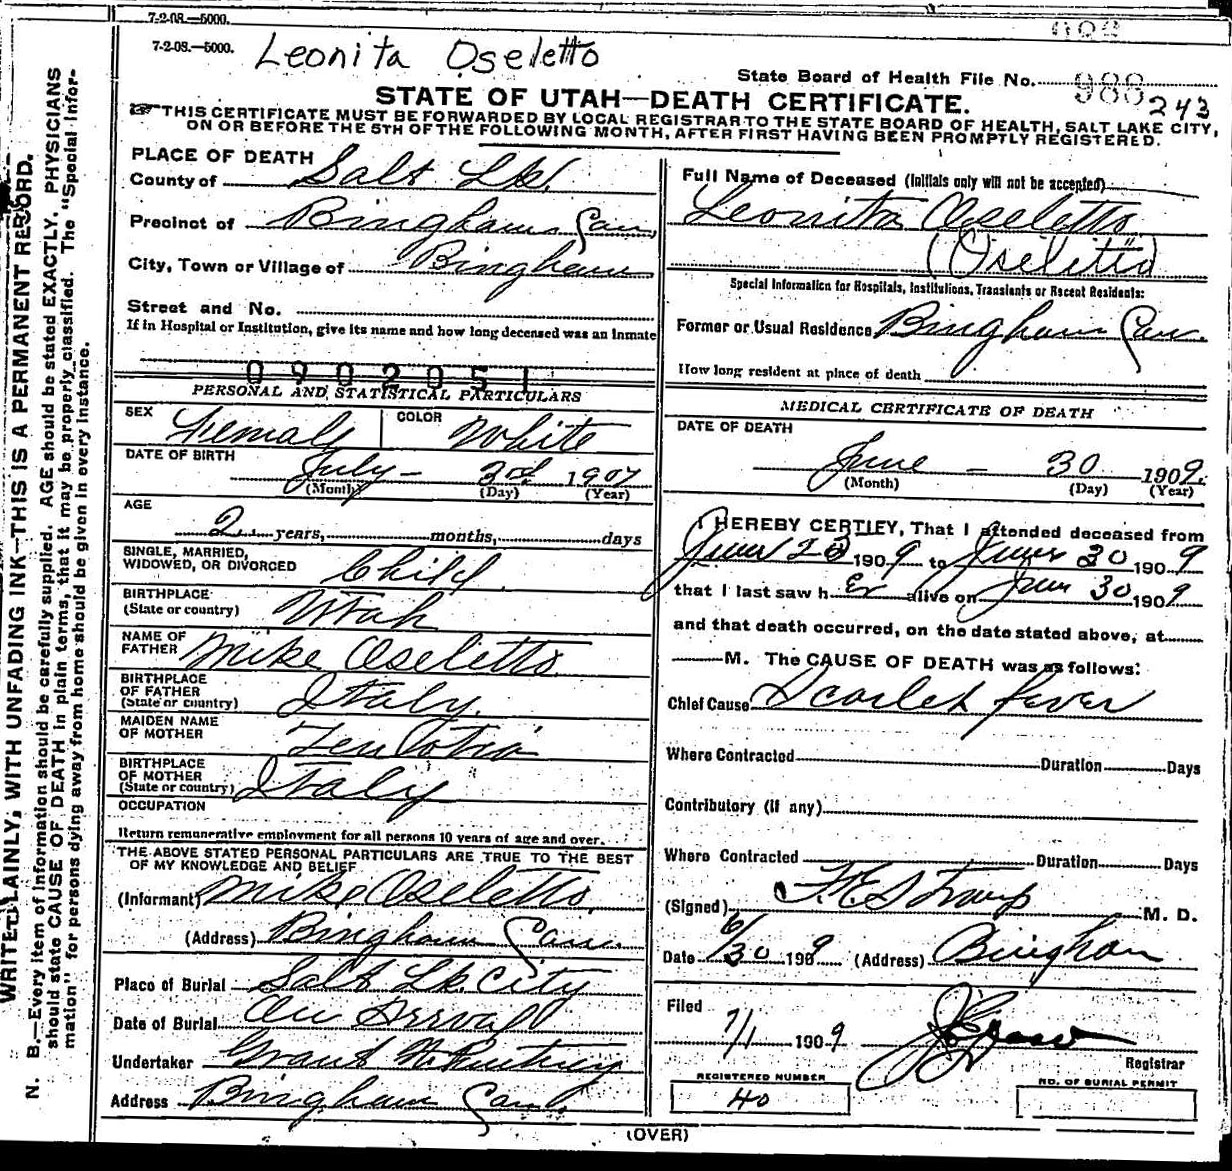 7-2-08.—5000.
7-2-08.—5000.
Leonita Oseletto
State Board of Health File No. 988
243
STATE OF UTAH—DEATH CERTIFICATE.
☞ THIS CERTIFICATE MUST BE FORWARDED BY LOCAL REGISTRAR TO THE STATE BOARD OF HEALTH, SALT LAKE CITY,
ON OR BEFORE THE 5TH OF THE FOLLOWING MONTH, AFTER FIRST HAVING BEEN PROMPTLY REGISTERED.
WRITE PLAINLY, WITH UNFADING INK—THIS IS A PERMANENT RECORD.
N. B.—Every item of information should be carefully supplied. AGE should be stated EXACTLY. PHYSICIANS
should state CAUSE OF DEATH in plain terms, that it may be properly classified. The "Special Infor-
mation" for persons dying away from home should be given in every instance.
PLACE OF DEATH
County of Salt Lk.
Precinct of Bingham Can.
City, Town or Village of Bingham
Street and No.
If in Hospital or Institution, give its name and how long deceased was an inmate
0902051
PERSONAL AND STATISTICAL PARTICULARS
SEX Female COLOR White
DATE OF BIRTH
July - 3rd 1907
(Month) (Day) (Year)
AGE
2 years, months, days
SINGLE, MARRIED,
WIDOWED, OR DIVORCED Child
BIRTHPLACE
(State or country) Utah
NAME OF
FATHER Mike Oseletto
BIRTHPLACE
OF FATHER
(State or country) Italy.
MAIDEN NAME
OF MOTHER
BIRTHPLACE
OF MOTHER
(State or country) Italy
OCCUPATION
Return remunerative employment for all persons 10 years of age and over.
THE ABOVE STATED PERSONAL PARTICULARS ARE TRUE TO THE BEST
OF MY KNOWLEDGE AND BELIEF
(Informant) Mike Oseletto
(Address) Bingham Can.
Place of Burial Salt Lk. City
Date of Burial On Arrival
Undertaker Grant
Address Bingham Can.
Full Name of Deceased (Initials only will not be accepted)
Leonita Oseletto
(Oseletto)
Special Information for Hospitals, Institutions, Transients or Recent Residents:
Former or Usual Residence Bingham Can.
How long resident at place of death
MEDICAL CERTIFICATE OF DEATH
DATE OF DEATH
June - 30 1909.
(Month) (Day) (Year)
I HEREBY CERTIFY, That I attended deceased from
June 1909 to June 30 1909
that I last saw h er alive on June 30 1909
and that death occurred, on the date stated above, at
M. The CAUSE OF DEATH was as follows:
Chief Cause Scarlet fever
Where Contracted Duration Days
Contributory (if any)
Where Contracted Duration Days
(Signed) F. E. Straup M. D.
Date 6/30 1909 (Address) Bingham
Filed
7/1 1909
Registrar
REGISTERED NUMBER
40
NO. OF BURIAL PERMIT
(OVER)